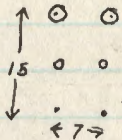 15
7